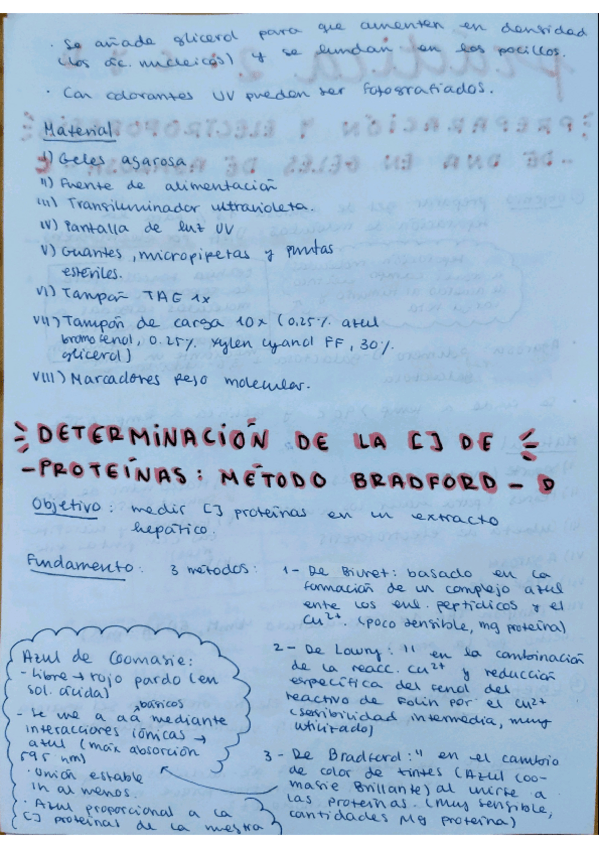 · Se añade glicerol para que aumenten en densidad
(los ác. nucleicos) y se hundan en los pocillos.
· Con colorantes UV pueden ser fotografiados.
Material
I) Geles agarosa.
II) Fuente de alimentación
III) Transiluminador ultravioleta.
IV) Pantalla de luz UV
V) Guantes, micropipetas y puntas
estériles.
VI) Tampón TAE 1x
VII) Tampón de carga 10x (0.25% azul
bromofenol, 0.25% xylen cyanol FF, 30%
glicerol)
VIII) Marcadores peso molecular.
DETERMINACIÓN DE LA [] DE
- PROTEÍNAS: MÉTODO BRADFORD -
Objetivo: medir [] proteínas en un extracto
hepático.
Fundamento: 3 métodos: 1- De Biuret: basado en la
formación de un complejo azul
ente los enl. peptídicos y el
Cu2+. (poco sensible, mg proteína)
2- De Lowry: " en la combinación
de la reacc. Cu2+ y reducción
específica del fenol del
reactivo de Folin por el Cu2+
(sensibilidad intermedia, muy
utilizado)
3- De Bradford: " en el cambio
de color de tintes (Azul Coo-
masie Brillante) al unirse a
las proteínas. (muy sensible,
cantidades Mg proteína)
Azul de Coomasie:
- Libre → rojo pardo (en
sol. ácida)
- Se une a aá básicos mediante
interacciones iónicas →
azul (máx absorción
595 nm)
· Unión estable
1h al menos.
· Azul proporcional a la
[] proteínas de la muestra